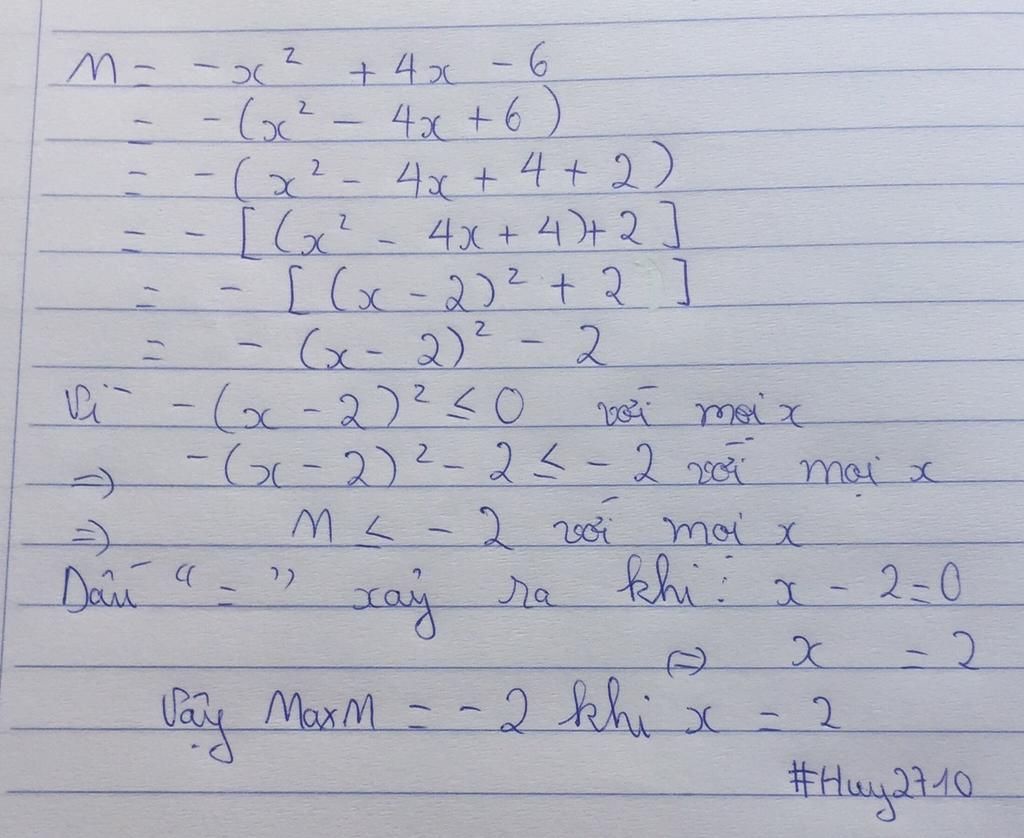 M = -x² + 4x - 6
= -(x² - 4x + 6)
= -(x² - 4x + 4 + 2)
= -[(x² - 4x + 4) + 2]
= -[(x - 2)² + 2]
= -(x - 2)² - 2
Vì -(x - 2)² ≤ 0 với mọi x
=> -(x - 2)² - 2 ≤ -2 với mọi x
=> M ≤ -2 với mọi x
Dấu " = " xảy ra khi : x - 2 = 0
<=> x = 2
Vậy MaxM = -2 khi x = 2
#Huy2710